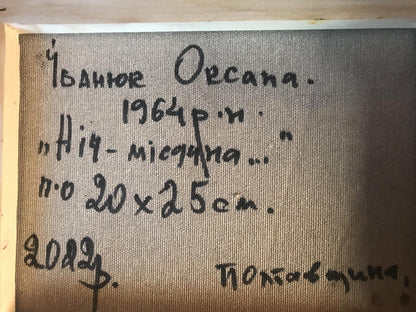 Іванюк Оксана.
1964 р.н.
„Ніч - місячна..."
п.о 20х25см.
2012р.
Полтавщина,